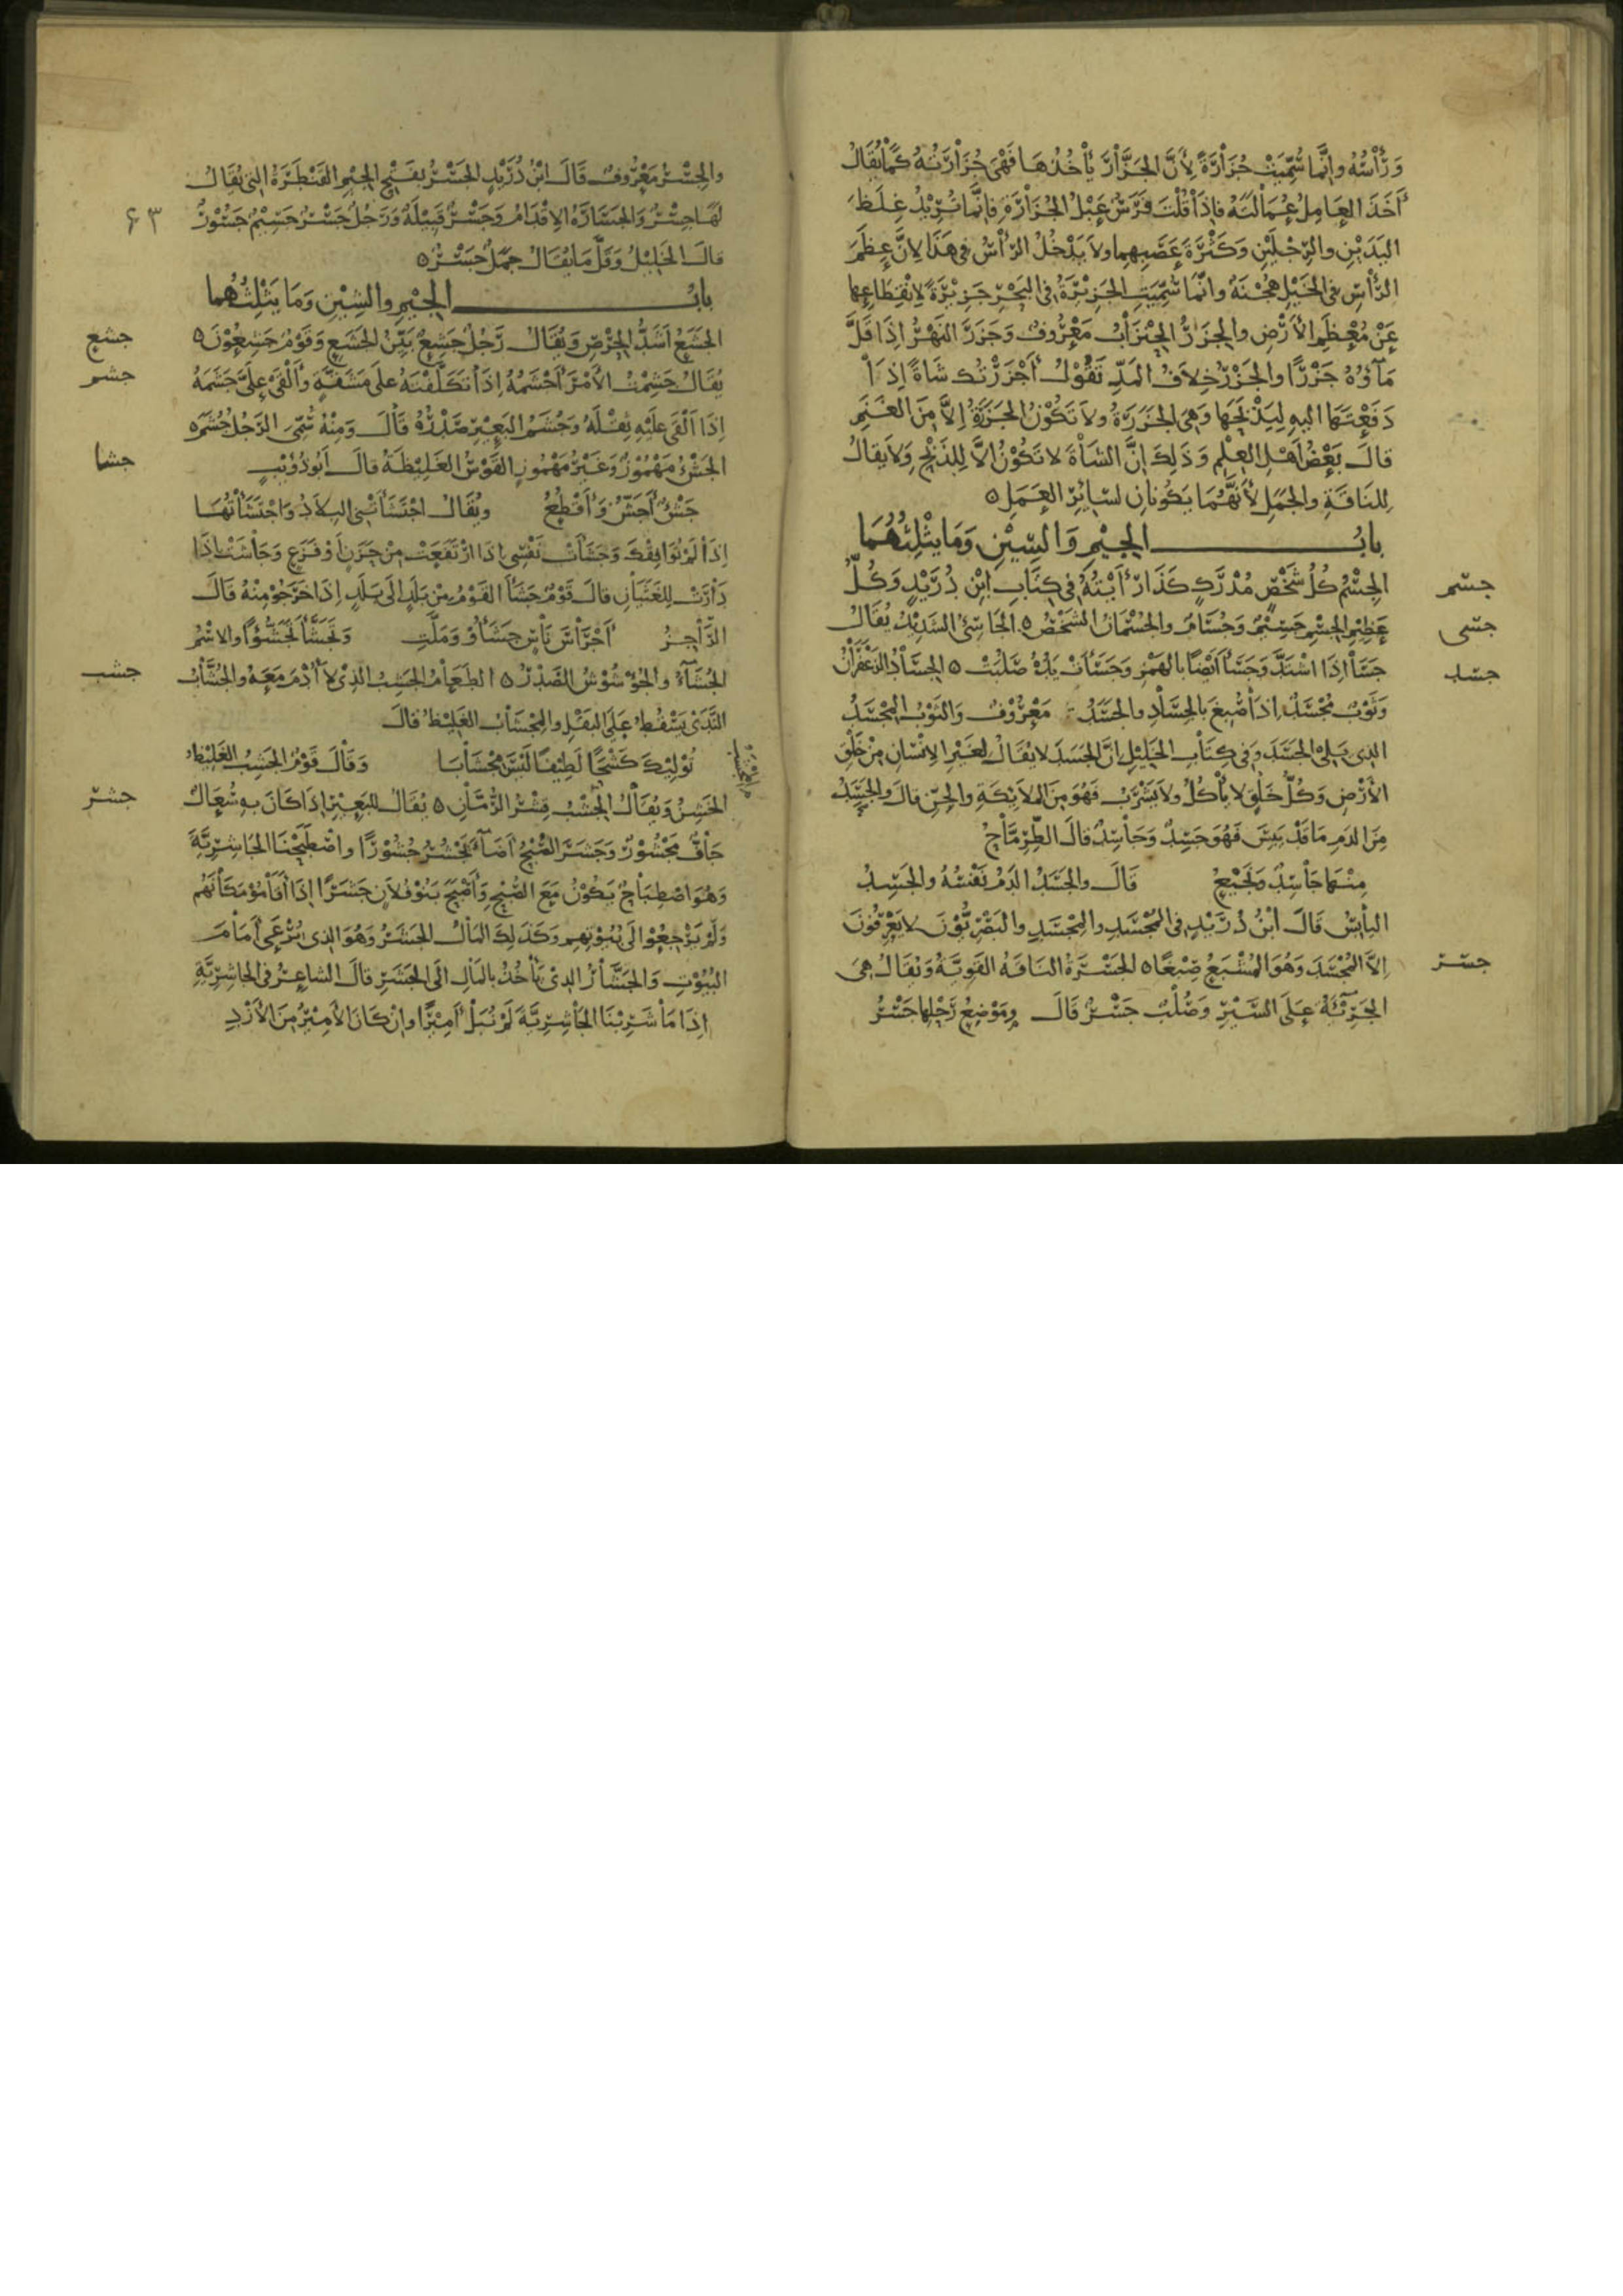 ورأسه وإنما سميت جزارة لأن الجزار يأخذها فهى جزارته كما يقال
أخذ العامل عمالته فإذا قلت فرس عبل الجزارة فإنما تريد غلظ
اليدين والرجلين وكثرة عصبهما ولا يدخل الرأس في هذا لأن عظم
الرأس في الخيل هجنة وإنما سميت الجزيرة في البحر جزيرة لانقطاعها
عن معظم الأرض والجزر الجنزاب معروف وجزر النهر إذا قل
ماؤه جزرا والجزر خلاف المد تقول أجزرتك شاة إذا
دفعتها إليه ليذبحها وهي الجزرة ولا تكون الجزرة إلا من الغنم
قال بعض أهل العلم وذلك إن الشاة لا تكون إلا للذبح ولا يقال
للناقة والجمل لأنهما يكونان لسائر العمل ه
باب الجيم والسين وما يثلثهما
جسم
الجسم كل شخص مدرك كذا رأيته في كتاب ابن دريد وكل
جسى
عظيم الجسم جسيم وجسام والجسمان الشخص ه الجاسئ الشديد يقال
جسد
جسا إذا اشتد وجسأ أيضا بالهمز وجسأت يده صلبت ه الجساد الزعفران
وثوب مجسد إذا صبغ بالجساد والجسد معروف والثوب المجسد
الذي يلي الجسد وفي كتاب الخليل إن الجسد لا يقال لغير الإنسان من خلق
الأرض وكل خلق لا يأكل ولا يشرب فهو من الملائكة والجن قال والجسد
من الدم ما قد يبس فهو جسد وجاسد قال الطرماح
منها جاسد ونجيع قال والجسد الدم نفسه والجسد
اليابس قال ابن دريد في المجسد والمجسد والبصريون لا يعرفون
جسر
إلا المجسد وهو المشبع صبغا ه الجسرة الناقة القوية ويقال هي
الجريئة على السير وصلب جسر قال وموضع رحلها جسر
٦٣
والجسر معروف قال ابن دريد الجسر بفتح الجيم القنطرة التي يقال
لها جسر والجسارة الإقدام وجسر قبيلة ورجل جسر جسيم جسور
قال الخليل وقل ما يقال جمل جسر ه
باب الجيم والشين وما يثلثهما
جشع
الجشع أشد الحرص ويقال رجل جشع بين الجشع وقوم جشعون ه
جشم
يقال جشمت الأمر أجشمه إذا تكلفته على مشقة وألقى علي جشمه
إذا ألقى عليه ثقله وجشم البعير صدره قال ومنه سمي الرجل جشم ه
جشا
الجشء مهموز وغير مهموز القوس الغليظة قال أبو ذؤيب
جشء أجش وأقطع ويقال اجتشأتني البلاد واجتشأتها
إذا لم توافقك وجشأت نفسي إذا ارتفعت من حزن أو فزع وجاشت إذا
دارت للغثيان قال قوم جشأ القوم من بلد إلى بلد إذا خرجوا منه قال
الراجز أحراس ناس جشأوا وملت وتجشأ تجشؤا والاسم
جشب
الجشاء والجؤشوش الصدر ه الطعام الجشب الذي لا أدم معه والجشاب
الندى يسقط على البقل والمجشاب الغليظ قال
توليك كشحا لطيفا ليس مجشابا وقال قوم الجشب الغليظ
جشر
الخشن ويقال الجشب قشر الرمان ه يقال للبعير إذا كان به سعال
جاف مجشور وجشر الصبح أضاء يجشر جشورا واصطبحنا الجاشرية
وهو اصطباح يكون مع الصبح وأصبح بنو فلان جشرا إذا أقاموا مكانهم
ولم يرجعوا إلى بيوتهم وكذلك المال الجشر وهو الذي يرعى أمام
البيوت والجشار الذي يأخذ بالمال إلى الجشر قال الشاعر في الجاشرية
إذا ما شربنا الجاشرية لم نبل أميرا وإن كان الأمير من الأزد